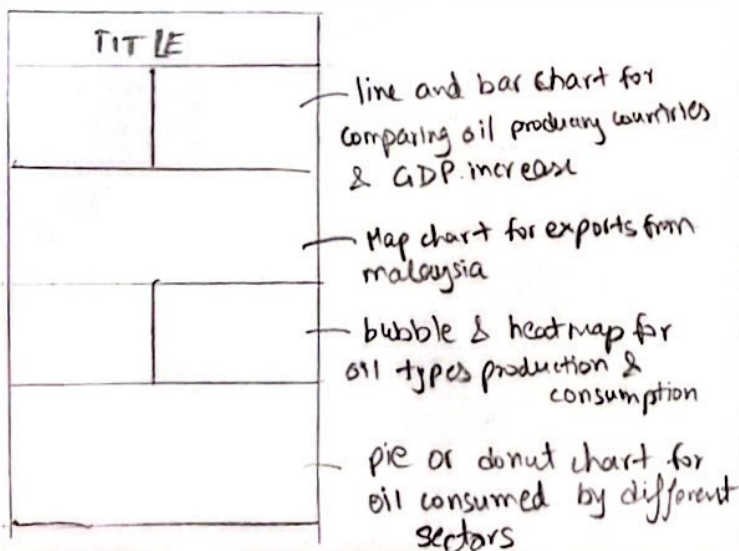 TITLE
line and bar chart for
comparing oil producing countries
& GDP increase
Map chart for exports from
malaysia
bubble & heatmap for
oil types production &
consumption
pie or donut chart for
oil consumed by different
sectors